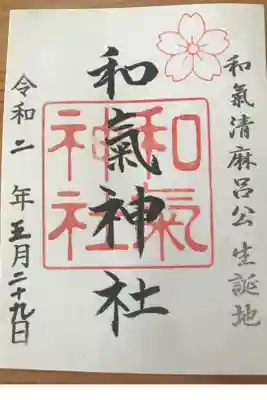 和氣清麻呂公 生誕地
和氣神社
和氣神社
令和二年五月二十九日